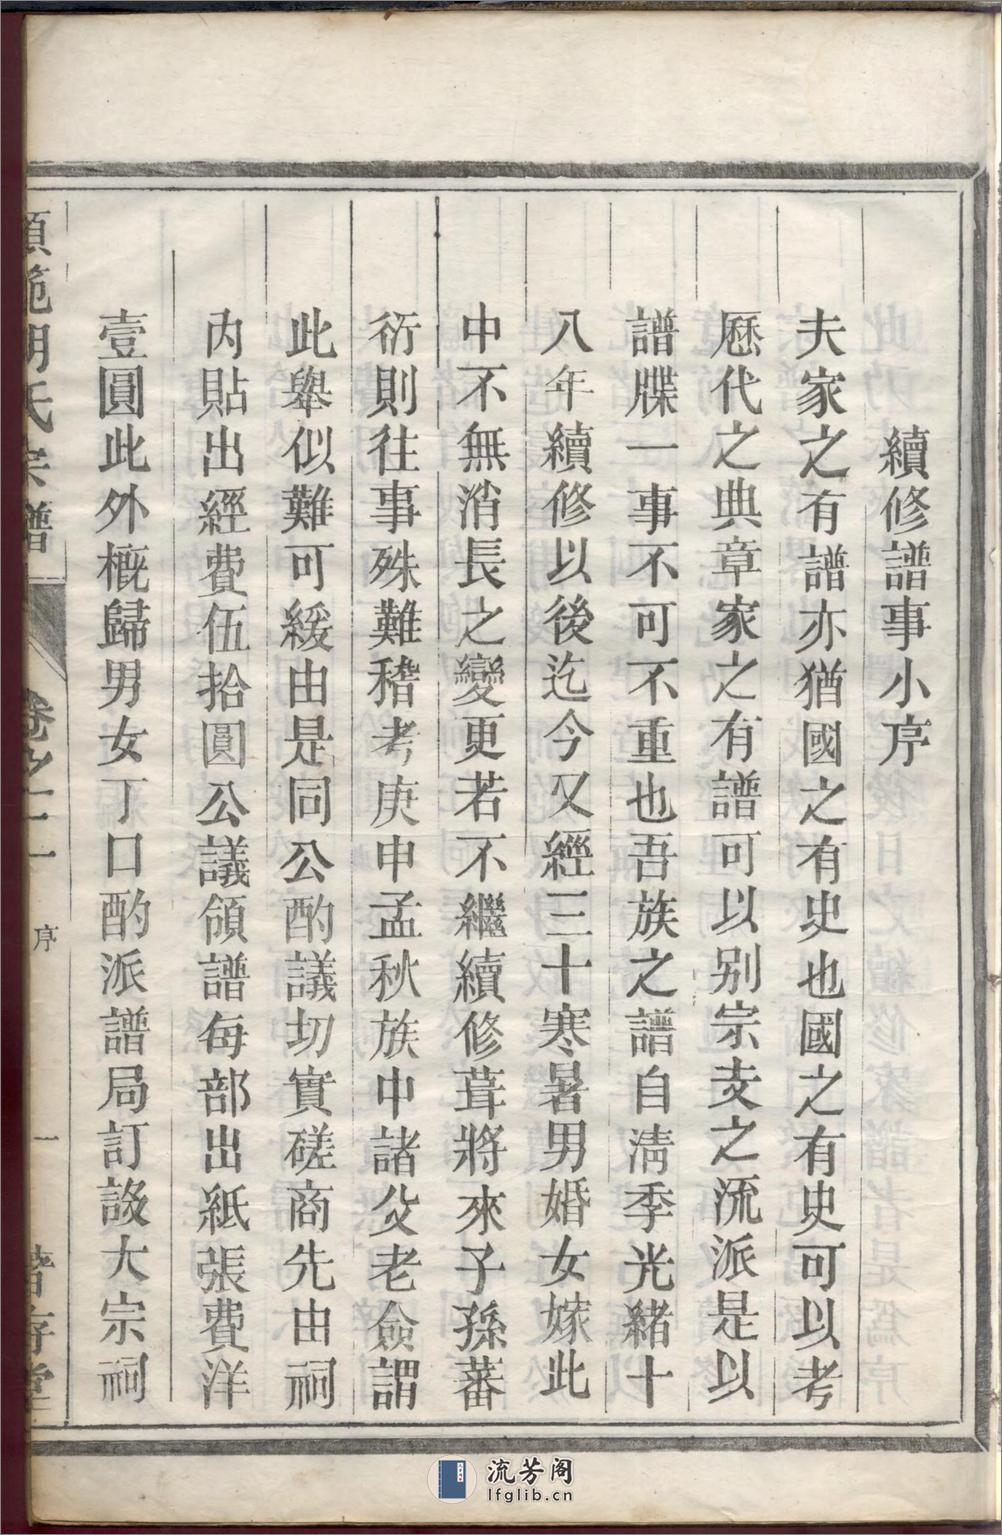 續修譜事小序
夫家之有譜亦猶國之有史也國之有史可以考
歷代之典章家之有譜可以别宗支之流派是以
譜牒一事不可不重也吾族之譜自淸季光緒十
八年續修以後迄今又經三十寒暑男婚女嫁此
中不無消長之變更若不繼續修葺將來子孫蕃
衍則往事殊難稽考庚申孟秋族中諸父老僉謂
此舉似難可緩由是同公酌議切實磋商先由祠
內貼出經費伍拾圓公議領譜每部出紙張費洋
壹圓此外槪歸男女丁口酌派譜局訂設大宗祠
氏宗譜
卷之一
序
一
流芳阁
lfglib.cn